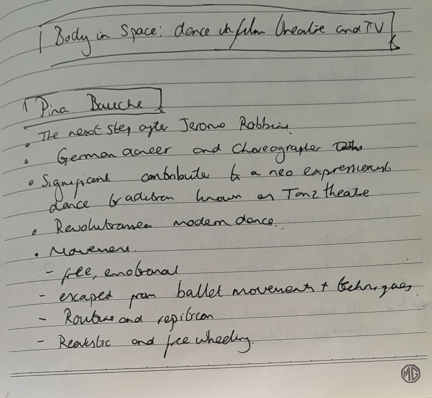 Body in Space: dance in film theatre and TV
Pina Bausche
• The next step after Jerome Robbins.
• German dancer and Choreographer
• Significant contribute to a neo expressionist
dance tradition known as Tanztheatre
• Revolutionen modern dance.
• Movement.
- free, emotional
- escaped from ballet movements + techniques
- Routine and repition
- Realistic and free wheeling.
MG